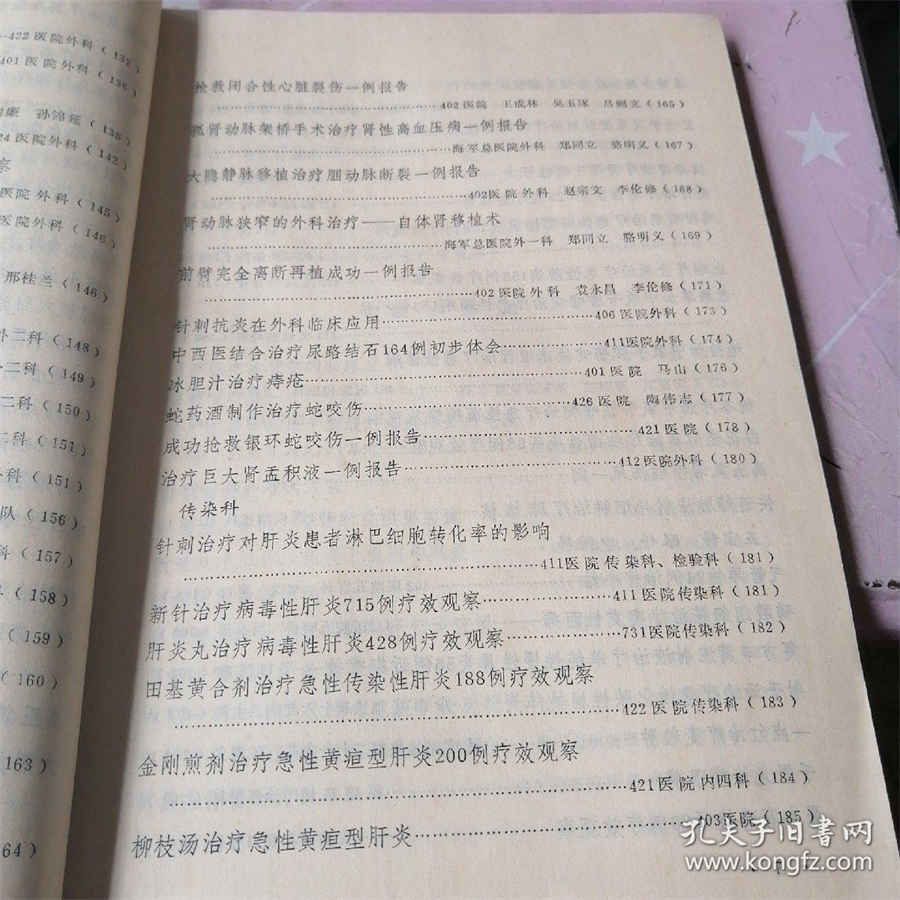 422医院外科(132)
401医院外科(136)
孙锦瑶(138)
24医院外科(142)
察
医院外科(145)
医院外科(146)
邢桂兰(146)
外二科(148)
二科(149)
二科(150)
二科(151)
科(151)
队(156)
科(157)
(158)
(159)
(160)
163)
64)
抢救闭合性心脏裂伤一例报告
402医院 王成林 吴玉琢 吕刚克(165)
肾动脉架桥手术治疗肾性高血压病一例报告
海军总医院外科 郑同立 骆明义(167)
大隐静脉移植治疗腘动脉断裂一例报告
402医院外科 赵宗文 李伦修(168)
肾动脉狭窄的外科治疗——自体肾移植术
海军总医院外一科 郑同立 骆明义(169)
前臂完全离断再植成功一例报告
402医院外科 袁永昌 李伦修(171)
针刺抗炎在外科临床应用……406医院外科(173)
中西医结合治疗尿路结石164例初步体会……411医院外科(174)
冰胆汁治疗痔疮……401医院 马山(176)
蛇药酒制作治疗蛇咬伤……426医院 陶伟志(177)
成功抢救银环蛇咬伤一例报告……421医院(178)
治疗巨大肾盂积液一例报告……412医院外科(180)
传染科
针刺治疗对肝炎患者淋巴细胞转化率的影响
……411医院传染科、检验科(181)
新针治疗病毒性肝炎715例疗效观察……411医院传染科(181)
肝炎丸治疗病毒性肝炎428例疗效观察……731医院传染科(182)
田基黄合剂治疗急性传染性肝炎188例疗效观察
……422医院传染科(183)
金刚煎剂治疗急性黄疸型肝炎200例疗效观察
……421医院内四科(184)
柳枝汤治疗急性黄疸型肝炎……403医院(185)
孔夫子旧书网
www.kongfz.com